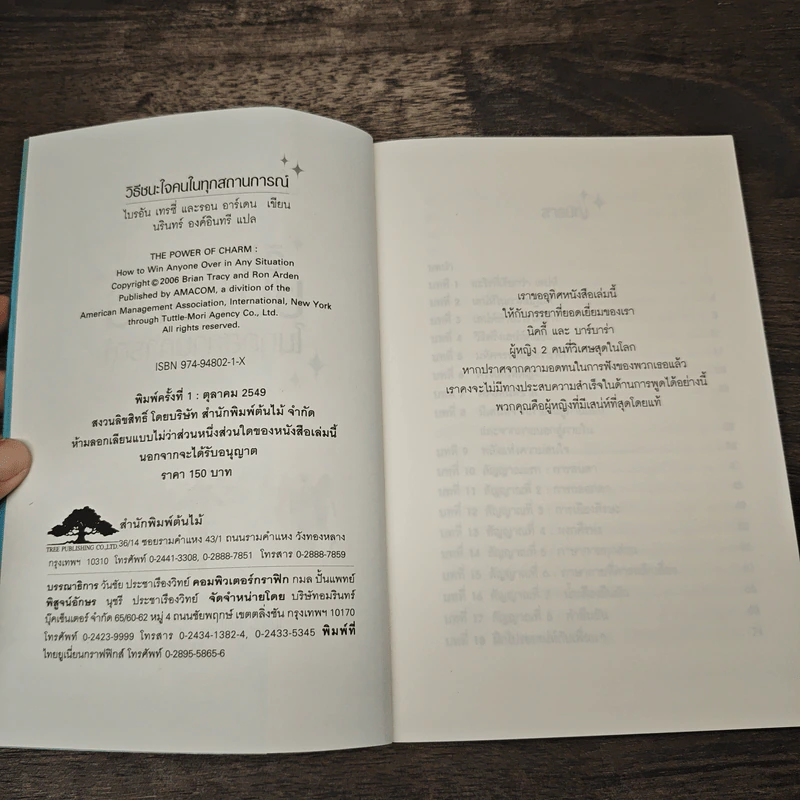 วิธีชนะใจคนในทุกสถานการณ์
ไบรอัน เทรซี่ และรอน อาร์เดน เขียน
นรินทร์ องค์อินทรี แปล
THE POWER OF CHARM :
How to Win Anyone Over in Any Situation
Copyright © 2006 Brian Tracy and Ron Arden
Published by AMACOM, a divition of the
American Management Association, International, New York
through Tuttle-Mori Agency Co., Ltd.
All rights reserved.
ISBN 974-94802-1-X
พิมพ์ครั้งที่ 1 : ตุลาคม 2549
สงวนลิขสิทธิ์ โดยบริษัท สำนักพิมพ์ต้นไม้ จำกัด
ห้ามลอกเลียนแบบไม่ว่าส่วนหนึ่งส่วนใดของหนังสือเล่มนี้
นอกจากจะได้รับอนุญาต
ราคา 150 บาท
สำนักพิมพ์ต้นไม้
TREE PUBLISHING CO.,LTD.
36/14 ซอยรามคำแหง 43/1 ถนนรามคำแหง วังทองหลาง
กรุงเทพฯ 10310 โทรศัพท์ 0-2441-3308, 0-2888-7851 โทรสาร 0-2888-7859
บรรณาธิการ วันชัย ประชาเรืองวิทย์ คอมพิวเตอร์กราฟิก กมล ปั้นแพทย์
พิสูจน์อักษร นุชรี ประชาเรืองวิทย์ จัดจำหน่ายโดย บริษัทอมรินทร์
บุ๊คเซ็นเตอร์ จำกัด 65/60-62 หมู่ 4 ถนนชัยพฤกษ์ เขตตลิ่งชัน กรุงเทพฯ 10170
โทรศัพท์ 0-2423-9999 โทรสาร 0-2434-1382-4, 0-2433-5345 พิมพ์ที่
ไทยยูเนี่ยนกราฟฟิกส์ โทรศัพท์ 0-2895-5865-6
เราขออุทิศหนังสือเล่มนี้
ให้กับภรรยาที่ยอดเยี่ยมของเรา
นิคกี้ และ บาร์บาร่า
ผู้หญิง 2 คนที่วิเศษสุดในโลก
หากปราศจากความอดทนในการฟังของพวกเธอแล้ว
เราคงจะไม่มีทางประสบความสำเร็จในด้านการพูดได้อย่างนี้
พวกคุณคือผู้หญิงที่มีเสน่ห์ที่สุดโดยแท้